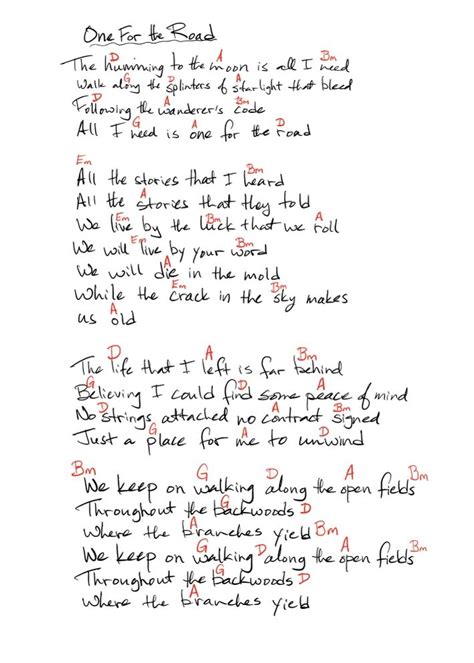 One For the Road
D A Bm
The humming to the moon is all I need
G D A
Walk along the splinters of starlight that bleed
D A Bm
Following the wanderer's code
G A D
All I need is one for the road
Em Bm
All the stories that I heard
A
All the stories that they told
Em Bm A
We live by the luck that we roll
Em Bm
We will live by your word
A
We will die in the mold
Em Bm
While the crack in the sky makes
A
us old
D A Bm
The life that I left is far behind
G D A
Believing I could find some peace of mind
D A Bm
No strings attached no contract signed
G A D
Just a place for me to unwind
Bm G D A Bm
We keep on walking along the open fields
G D
Throughout the backwoods
A Bm
Where the branches yield
G D A Bm
We keep on walking along the open fields
G D
Throughout the backwoods
A
Where the branches yield